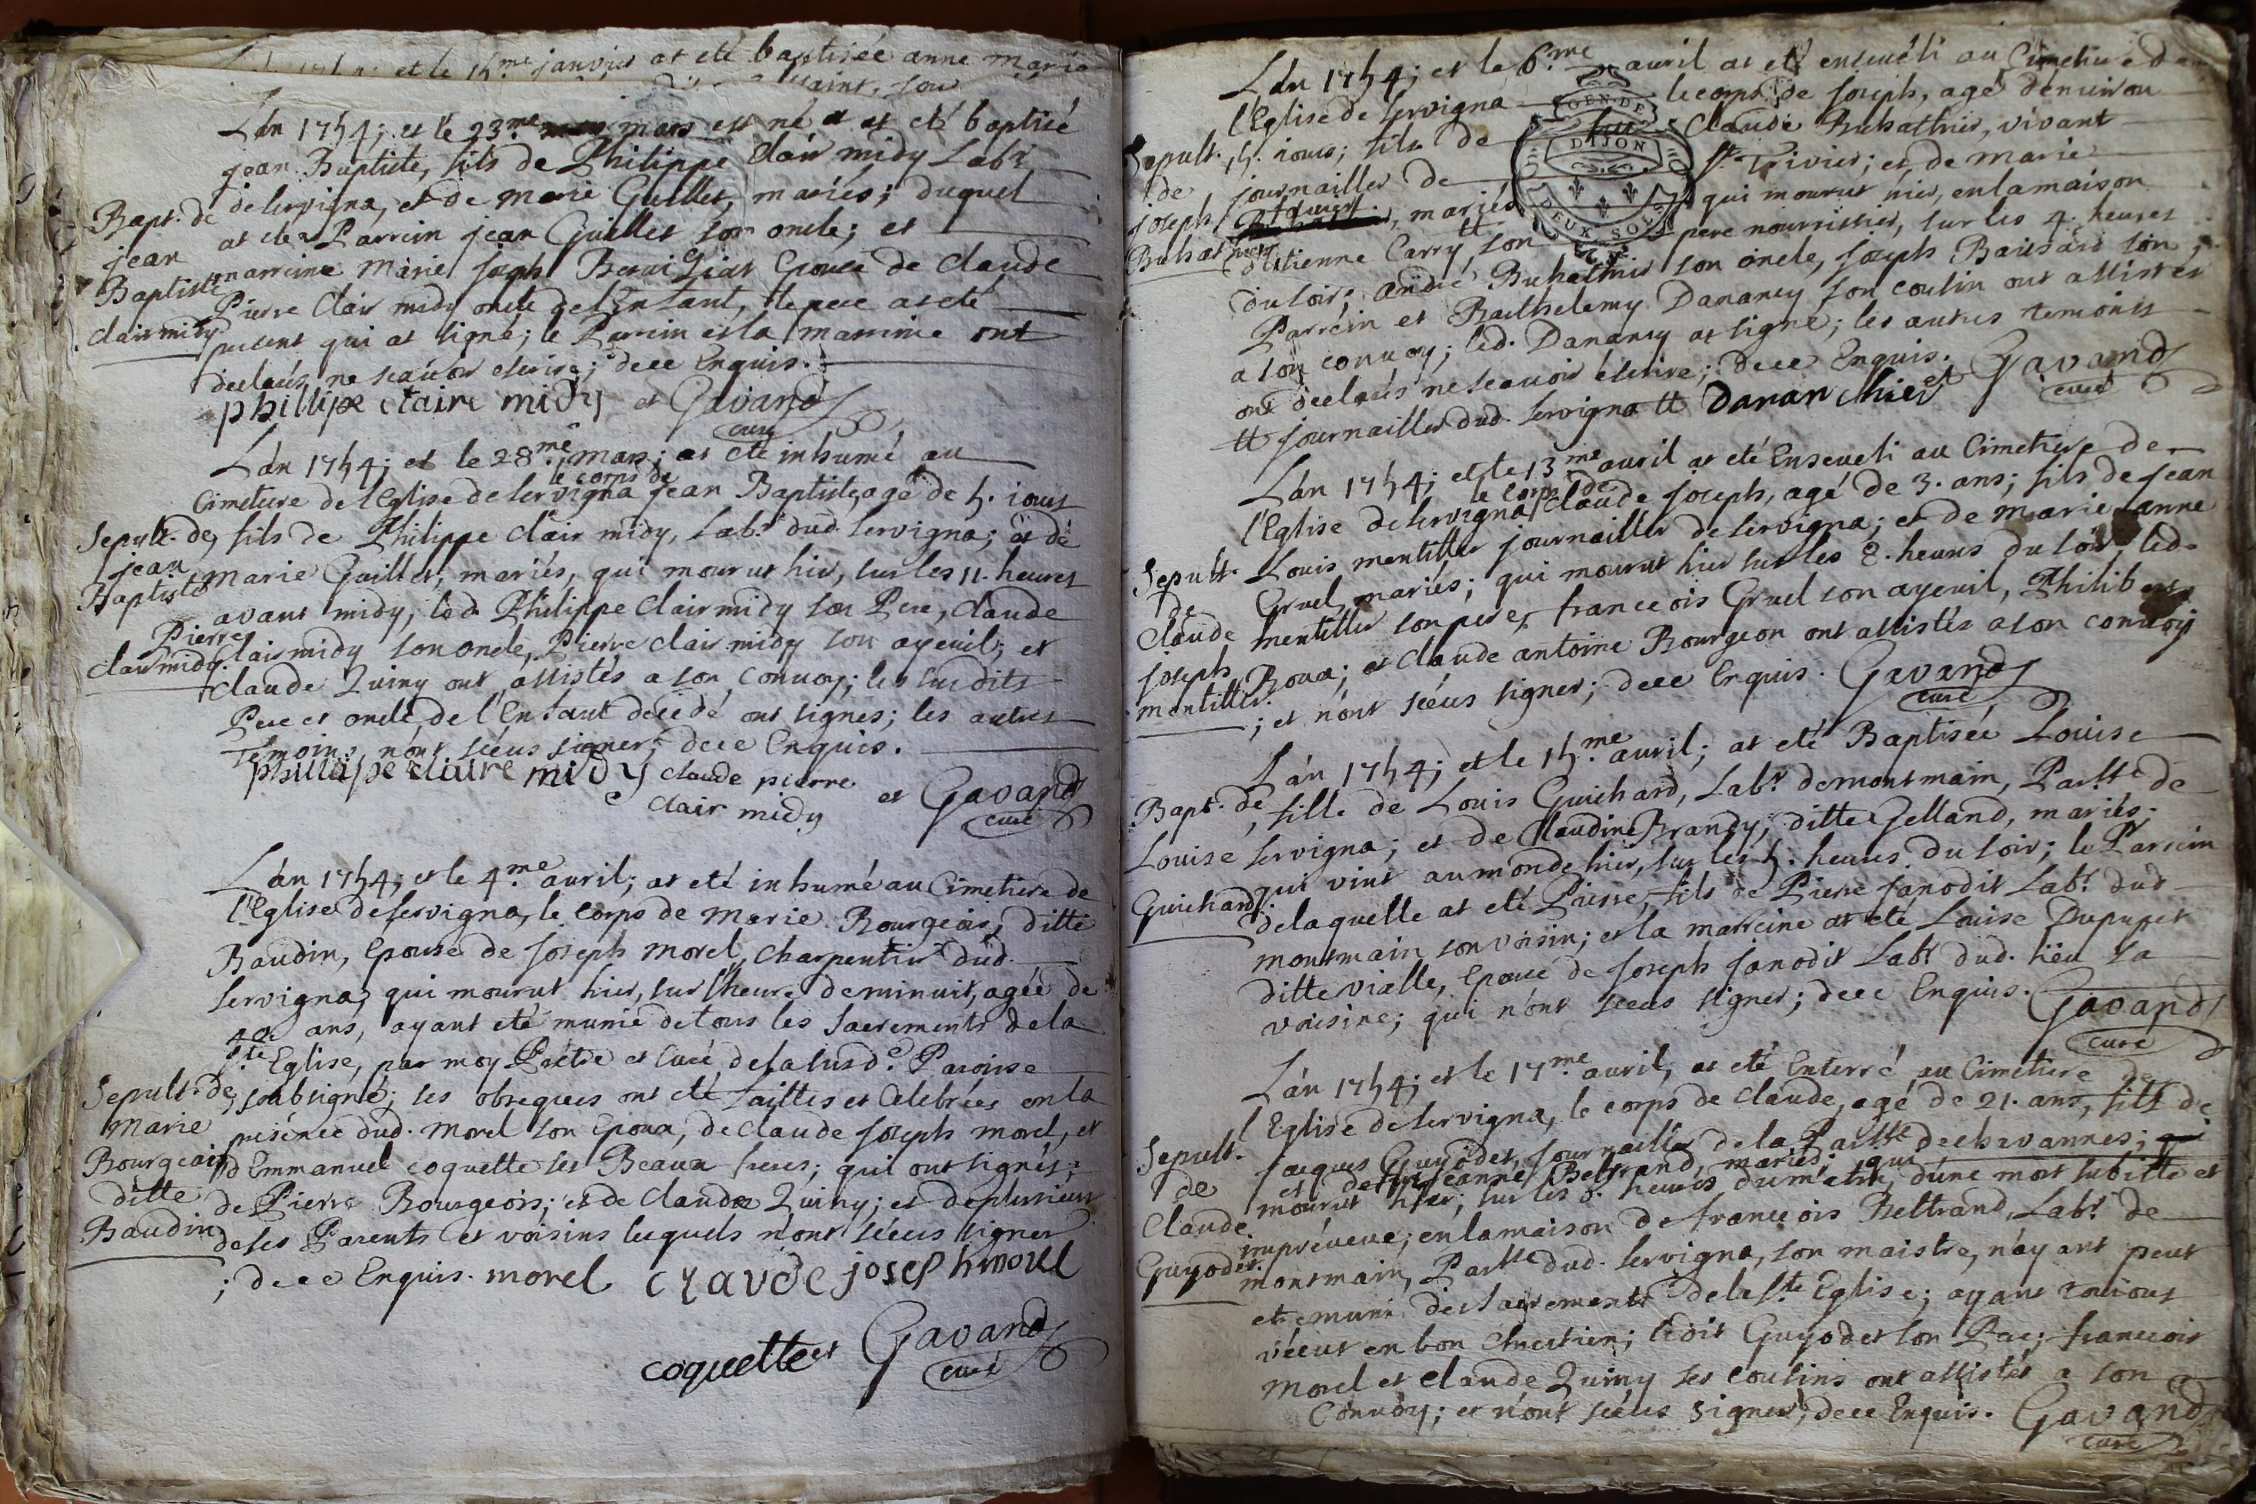 et le 15.me janvier at eté baptisée anne marie
Lán 1754; et le 23.me mars est né et at eté baptisé
jean Baptiste, fils de Philippe Clair midy Lab.r
de Servigna, et de Marie Guillet, mariés; duquel
at eté Parrein jean Guillet son oncle; et
marreine Marie joseph epouse de Claude
Pierre Clair midy oncle de l'Enfant, le pere at eté
present qui at signé; le Parrein et la marreine ont
declarés ne scavoir escrire; de ce Enquis.
Bapt. de
jean
Baptiste
Clair midy
phillipe claire midy et Gavand
curé
Lán 1754; et le 28.me mars; at eté inhumé au
Cimetiere de l'Eglise de Servigna le corps de jean Baptiste, agé de 5. iours
fils de Philippe Clair midy, Lab.r dud. Servigna; et de
Marie Guillet, mariés, qui mourut hier, sur les 11. heures
avant midy, led. Philippe Clair midy son Pere, Claude
Pierre Clair midy son oncle, Pierre Clair midy son ayeuil; et
Claude Quiny ont assistés a son Convoy; les susdits
Pere et oncle de l'Enfant decedé ont signés; les autres
Temoins n'ont scéus signer; de ce Enquis.
Sepult. de
jean
Baptiste
Clair midy.
phillipe claire midy claude pierre
clair midy
et Gavand
curé
Lán 1754; et le 4.me avril; at eté inhumé au Cimetiere de
l'Eglise de Servigna, le Corps de Marie Bourgeois, ditte
Baudin, Epouse de joseph Morel, Charpentier dud.
Servigna; qui mourut hier, sur l'heure de minuit, agée de
40 ans, ayant eté munie de tous les Sacrements de la
S.te Eglise, par moy Prêtre et Curé de la susd.e Paroisse
soubsigné; ses obseques ont eté faittes et Celebrées en la
presence dud. Morel son Epoux, de Claude joseph Morel, et
d'Emmanuel coquette ses Beaux freres; qui ont signés;
de Pierre Bourgeois; et de Claude Quiny; et de plusieurs
de ses Parents et voisins lesquels n'ont scéus signer
; de ce Enquis. morel claude joseph morel
Sepult. de
Marie
Bourgeois
ditte
Baudin
coquette et Gavand
curé
Lán 1754; et le 6.me avril at eté enseueli au Cimetiere de
l'Eglise de Servigna le corps de joseph, agé d'environ
15. iours; fils de Claude Buhathier, vivant
journailler de S.t Trivier; et de Marie
, mariés qui mourut hier, en la maison
d'Etienne Carry, son pere nourrissier, sur les 4. heures
du soir; andré Buhathier son oncle, joseph son
Parrein et Barthelemy Dananey son cousin ont assistés
a son convoy; led. Dananey at signé; les autres temoins
ont declarés ne scavoir escrire; de ce Enquis.
journailler dud. Servigna Danan chier et Gavand
curé
Sepult.
de
joseph
Buhathier
GEN. DE
DIJON
DEUX SOLS
Lán 1754; et le 13.me avril at eté Enseveli au Cimetiere de
l'Eglise de Servigna le corps de Claude joseph, agé de 3. ans; fils de jean
Louis mentiller journailler de Servigna; et de Marie anne
Gruel mariés; qui mourut hier sur les 8. heures du soir, led.
mentiller son pere, franceois Gruel son ayeuil, Philibert
Roux; et Claude antoine Bourgeon ont assistés a son convoy
; et n'ont scéus signer; de ce Enquis. Gavand
curé
Sepult.
de
Claude
joseph
mentiller.
Lán 1754; et le 15.me avril; at eté Baptisée Louise
fille de Louis Guichard, Lab.r de montmain, Par.sse de
Servigna; et de Claudine Brandy; ditte Gelland, mariés;
qui vint au monde hier, sur les 5. heures du soir; le Parrein
de laquelle at eté Pierre, fils de Pierre janodit Lab.r dud.
montmain son voisin; et la marreine at eté Louise Dupupet
ditte vialle, Epouse de joseph janodit Lab.r dud. lieu sa
voisine; qui n'ont scéus signer; de ce Enquis. Gavand
curé
Bapt. de
Louise
Guichard.
Lán 1754; et le 17.me avril, at eté Enterré au Cimetiere de
l'Eglise de Servigna, le corps de Claude, agé de 21. ans, fils de
jacques Guyodet, journailler de la Par.sse de chavannes;
et de jeanne Beltrand, mariés; qui
mourut hier; sur les 8. heures du matin, d'une mort subitte et
impréveue; en la maison de franceois Beltrand, Lab.r de
montmain, Par.sse dud. Servigna, son maistre, n'ayant peut
etre muni des Sacrements de la S.te Eglise; ayant toujours
vécut en bon Chrestien; ledit Guyodet son Pere; franceois
Morel et Claude Quiny ses cousins ont assistés a son
Convoy; et n'ont scéus signer; de ce Enquis. Gavand
curé
Sepult.
de
Claude
Guyodet.